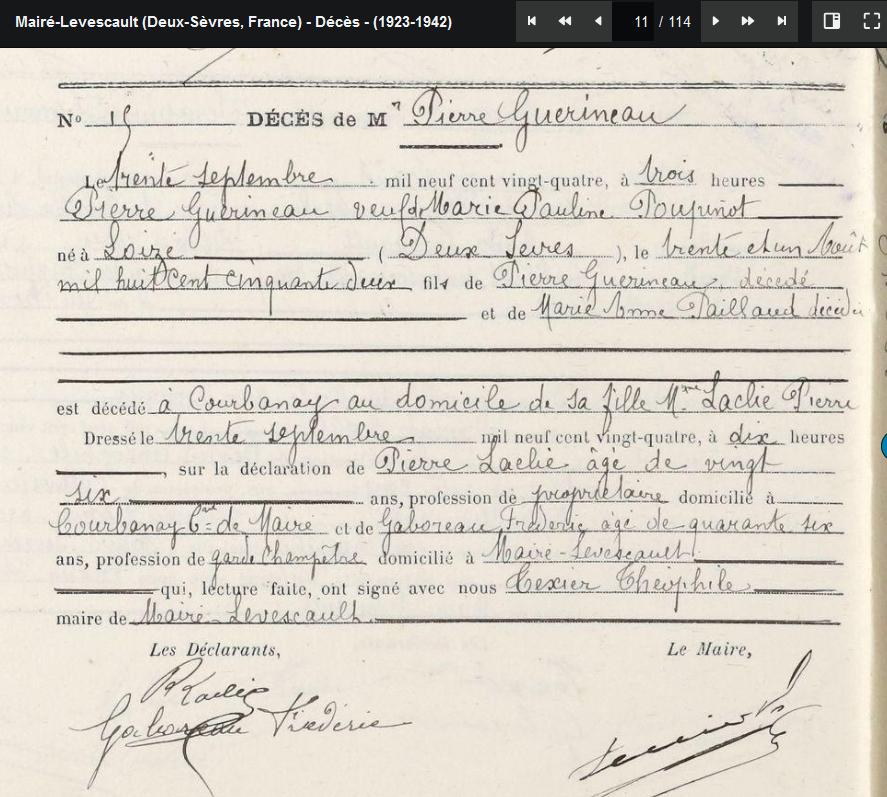 Mairé-Levescault (Deux-Sèvres, France) - Décès - (1923-1942)
11 / 114
No 15 DÉCÈS de Mr Pierre Guerineau
Le trente septembre mil neuf cent vingt-quatre, à trois heures
Pierre Guerineau veuf de Marie Pauline Poupinot
né à Loizé ( Deux Sevres ), le trente et un Août
mil huit cent cinquante deux fils de Pierre Guerineau, décédé
et de Marie Anne Paillaud décédée
est décédé à Courbanay au domicile de sa fille Mme Laclie Pierre
Dressé le trente septembre mil neuf cent vingt-quatre, à dix heures
, sur la déclaration de Pierre Laclie âgé de vingt
six ans, profession de propriétaire domicilié à
Courbanay Cne de Maire et de Gaboreau Frederic âgé de quarante six
ans, profession de garde champêtre domicilié à Mairé-Levescault
qui, lecture faite, ont signé avec nous Texier Théophile
maire de Mairé-Levescault.
Les Déclarants, Le Maire,
Gaboreau Frédéric